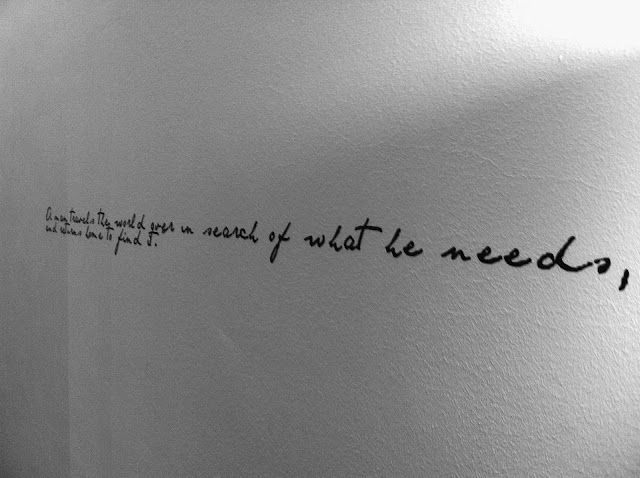 A man travels the world over in search of what he needs,
and returns home to find it.